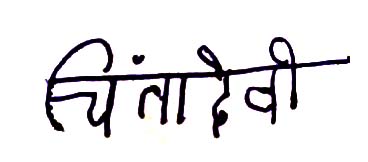 चिंतादेवी